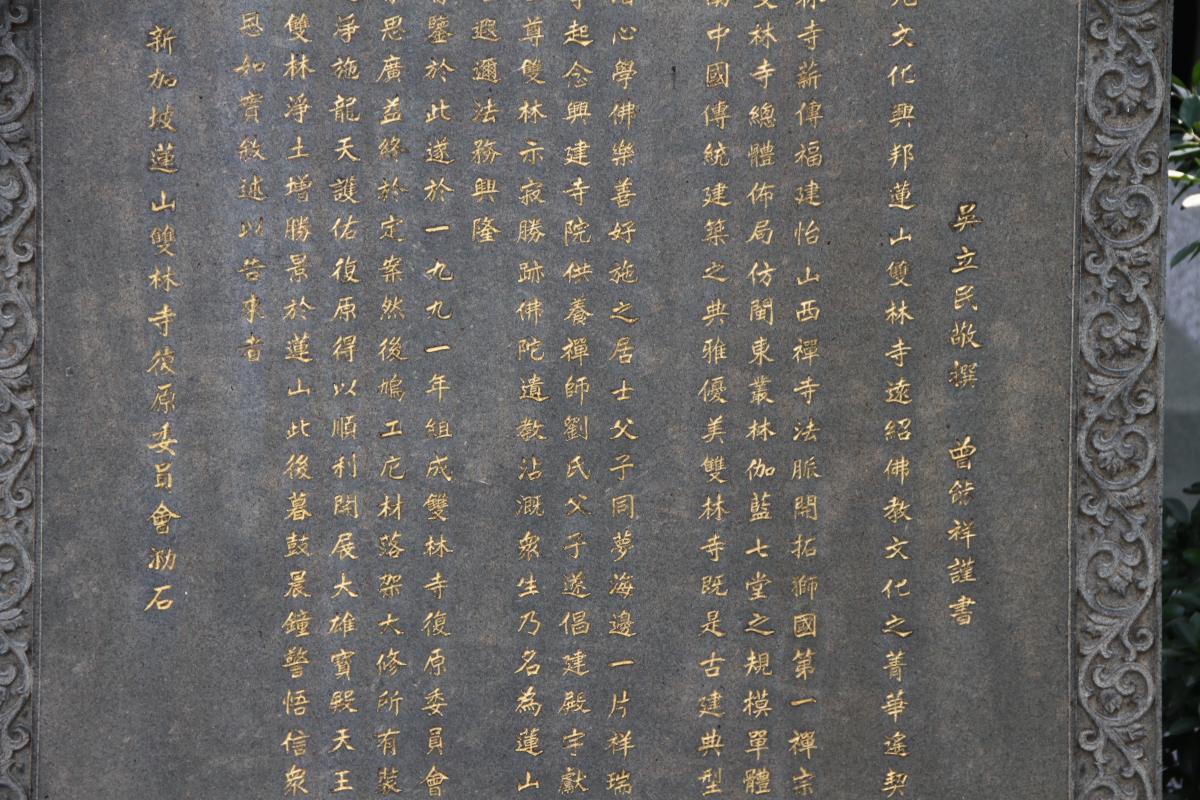 吴立民敬撰 曾偹祥謹書
文化興邦蓮山雙林寺遠紹佛教文化之菁華遙契
林寺薪傳福建怡山西禪寺法脈開拓獅國第一禪宗
雙林寺總體佈局仿閩東叢林伽藍七堂之規模單體
中國傳統建築之典雅優美雙林寺既是古建典型
心學佛樂善好施之居士父子同夢海邊一片祥瑞
起念興建寺院供養禪師劉氏父子遂倡建殿宇獻
尊雙林示寂勝跡佛陀遺教沾溉衆生乃名為蓮山
遐邇法務興隆
鑒於此遂於一九九一年組成雙林寺復原委員會
思廣益終於定案然後鳩工庀材落架大修所有裝
淨施龍天護佑復原得以順利開展大雄寶殿天王
雙林淨土增勝景於蓮山此後暮鼓晨鐘警悟信衆
恩如實敘述以告來者
新加坡蓮山雙林寺復原委員會泐石